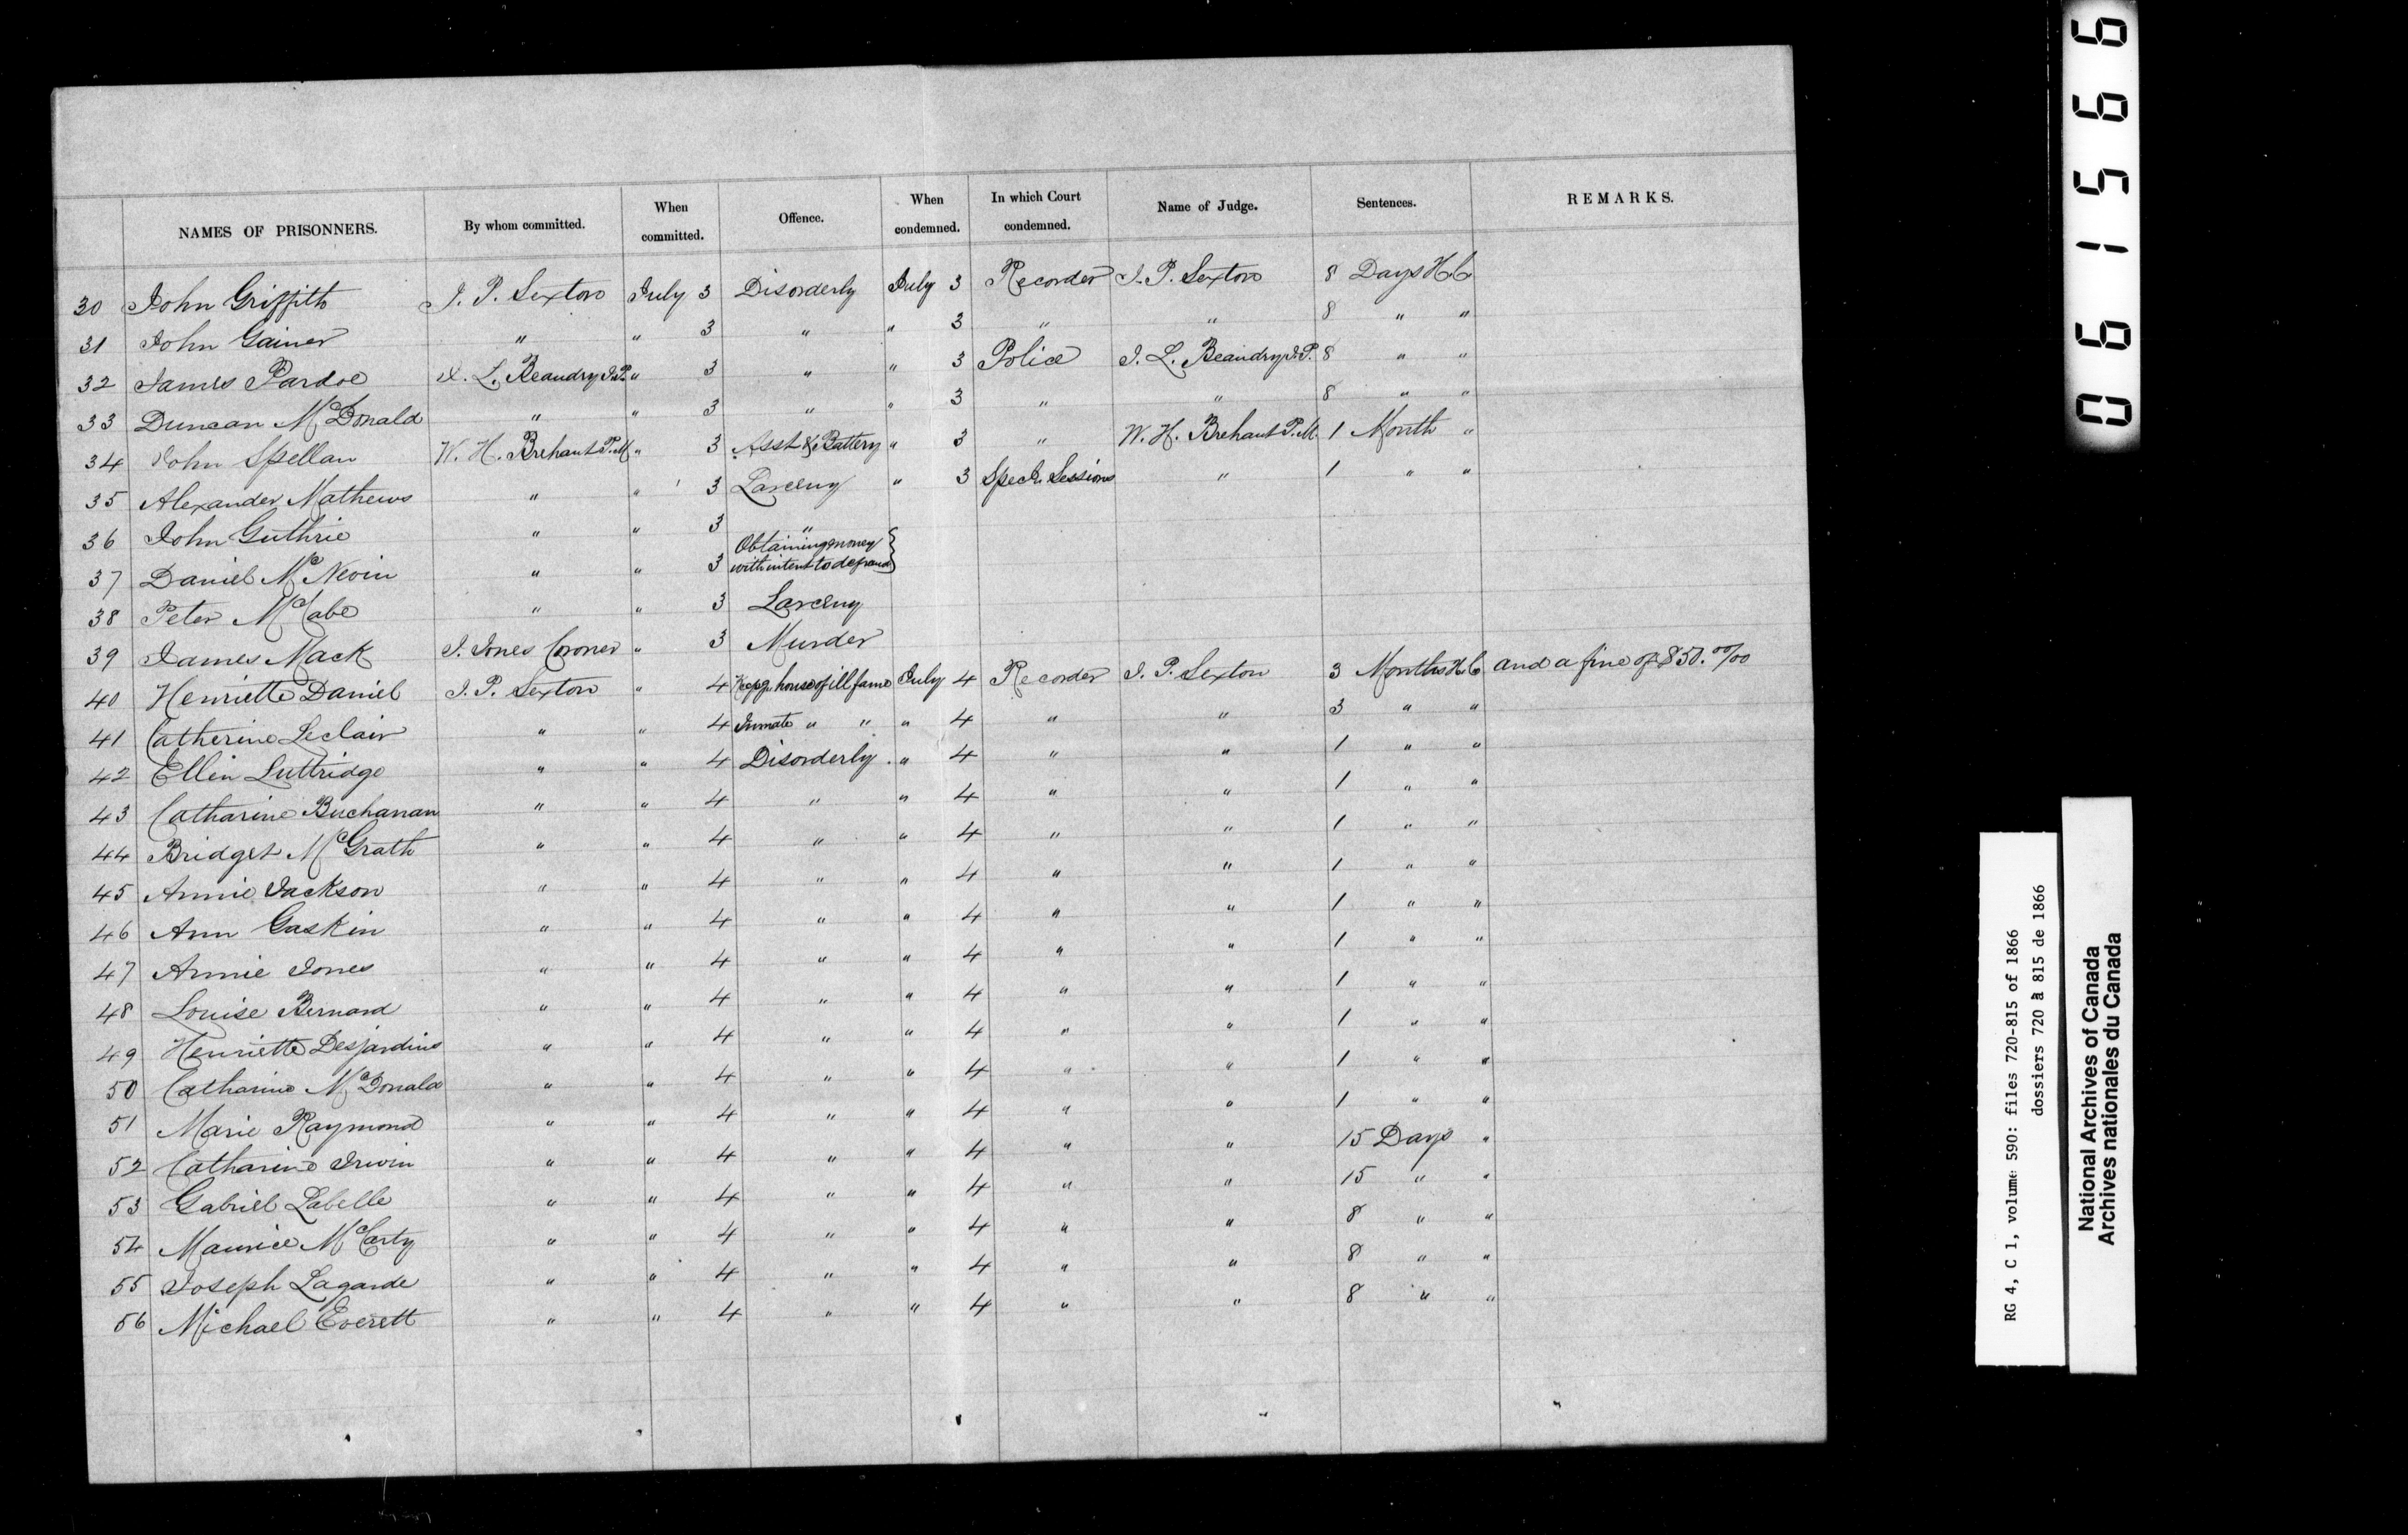 NAMES OF PRISONNERS. By whom committed. When committed. Offence. When condemned. In which Court condemned. Name of Judge. Sentences. REMARKS.
30 John Griffith J. P. Sexton July 3 Disorderly July 3 Recorder J. P. Sexton 8 Days H.L
31 John Gainer " " 3 " " 3 " " 8 " "
32 James Pardoe J. L. Beaudry J.P. " 3 " " 3 Police J. L. Beaudry J.P. 8 " "
33 Duncan McDonald " " 3 " " 3 " " 8 " "
34 John Spellan W. H. Brehaut P.M. " 3 Asst & Battery " 3 " W. H. Brehaut P.M. 1 Month "
35 Alexander Mathews " " 3 Larceny " 3 Specl. Sessions " 1 " "
36 John Guthrie " " 3 "
37 Daniel McNevin " " 3 Obtaining money with intent to defraud }
38 Peter McCabe " " 3 Larceny
39 James Mack J. Jones Coroner " 3 Murder
40 Henriette Daniel J. P. Sexton " 4 Keepg. house of ill fame July 4 Recorder J. P. Sexton 3 Months H.L and a fine of $50.00/00
41 Catherine Leclair " " 4 Inmate " " " 4 " " 3 " "
42 Ellen Luttridge " " 4 Disorderly. " 4 " " 1 " "
43 Catharine Buchanan " " 4 " " 4 " " 1 " "
44 Bridget McGrath " " 4 " " 4 " " 1 " "
45 Annie Jackson " " 4 " " 4 " " 1 " "
46 Ann Gaskin " " 4 " " 4 " " 1 " "
47 Annie Jones " " 4 " " 4 " " 1 " "
48 Louise Bernard " " 4 " " 4 " " 1 " "
49 Henriette Desjardins " " 4 " " 4 " " 1 " "
50 Catharine McDonald " " 4 " " 4 " " 1 " "
51 Marie Raymond " " 4 " " 4 " " 1 " "
52 Catharine Irwin " " 4 " " 4 " " 15 Days "
53 Gabriel Labelle " " 4 " " 4 " " 15 " "
54 Maurice McCarty " " 4 " " 4 " " 8 " "
55 Joseph Lagarde " " 4 " " 4 " " 8 " "
56 Michael Everett " " 4 " " 4 " " 8 " "
061566
RG 4, C 1, volume 590: files 720-815 of 1866
dossiers 720 à 815 de 1866
National Archives of Canada
Archives nationales du Canada